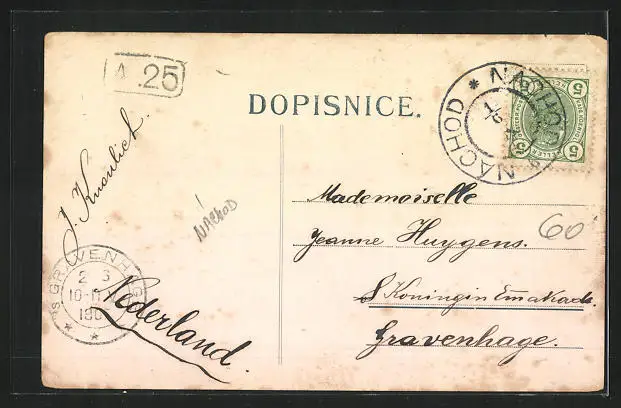 A.25
DOPISNICE.
NACHOD * NACHOD
5 5
5 5
J.
NACHOD
Mademoiselle
Jeanne Huygens.
60
Koningin Emakade.
Gravenhage.
'S GRAVENHAGE
2 3
10-11
190
Nederland.